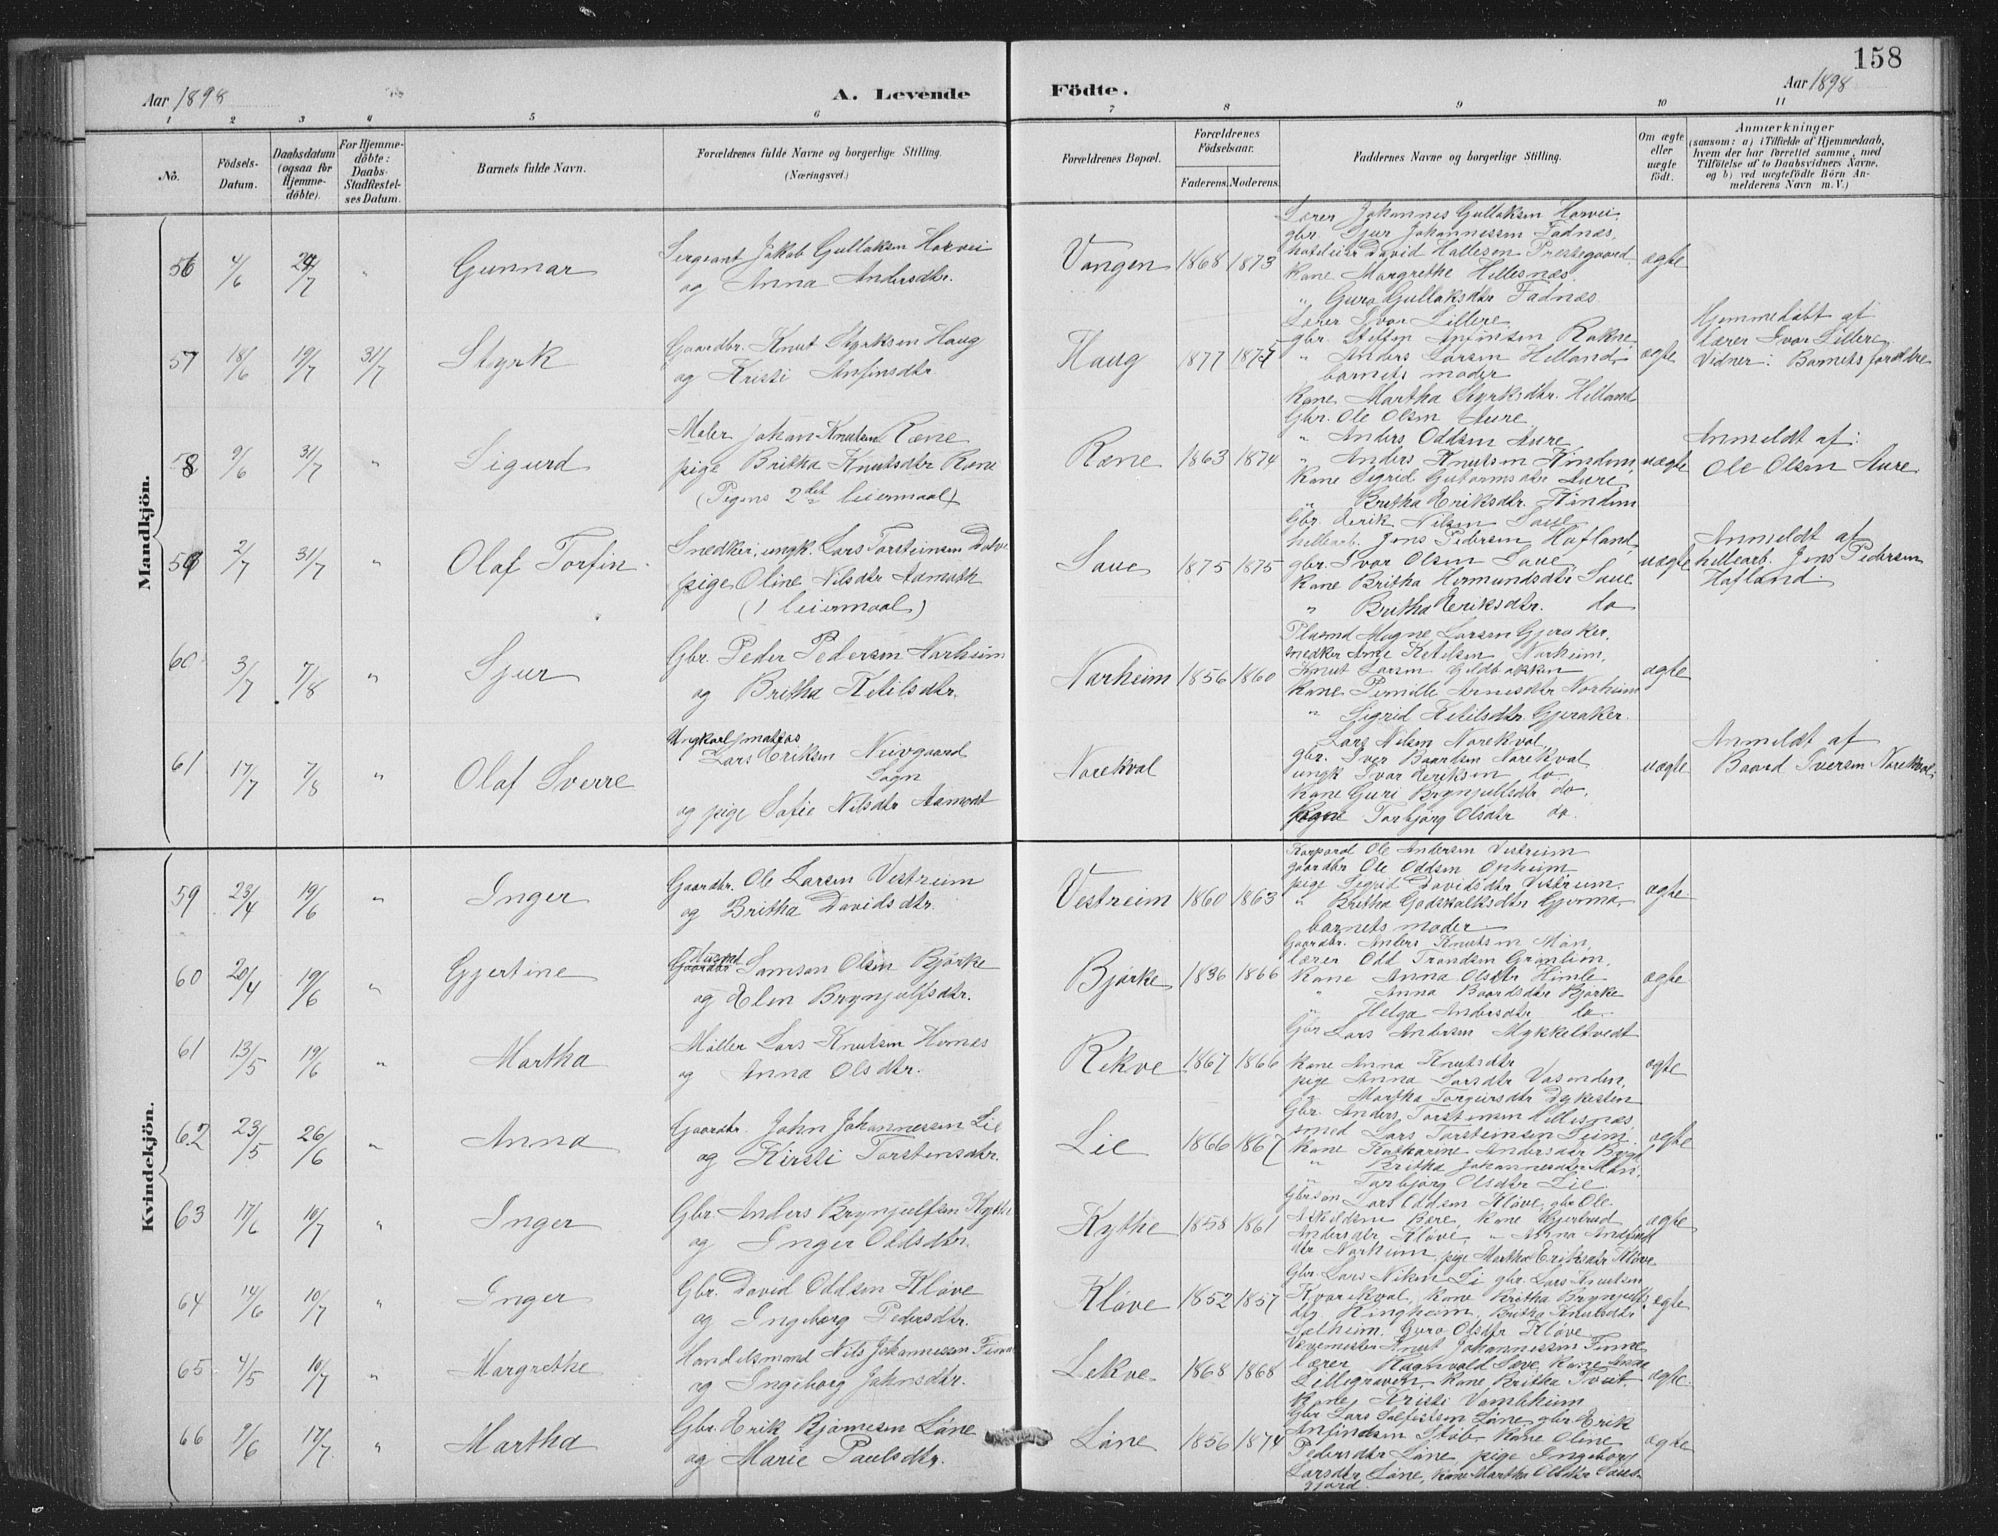 158
Aar 1898
A. Levende
Födte.
Aar 1898
1 2 3 4 5 6 7 8 9 10 11
No.
Födsels-Datum.
Daabsdatum (ogsaa for Hjemmedöbte).
For Hjemmedöbte: Daabs-Stadfæstelses Datum.
Barnets fulde Navn.
Forældrenes fulde Navne og borgerlige Stilling.
(Næringsvei.)
Forældrenes Bopæl.
Forældrenes Födselsaar.
Faderens.
Moderens.
Faddernes Navne og borgerlige Stilling.
Om ægte eller uægte födt.
Anmærkninger
(saasom: a) i Tilfælde af Hjemmedaab, hvem der har forrettet samme, med Tilföielse af to Daabsvidners Navne, og b) ved uægtefödte Börn Anmelderens Navn m. V.)
Mandkjön.
56 4/6 24/7 " Gunnar
Sergeant Jakob Gullaksen Harvei
og Anna Andersdtr.
Vangen 1868 1873
Lærer Johannes Gullaksen Harvei.
gbr. Sjur Johannessen Fadnæs,
David Hallesen Prestegaard.
Kone Margrethe Hillesnæs
" Guro Gullaksdtr Fadnæs
ægte
57 18/6 19/7 31/7 Styrk
Gaardbr. Knut Styrksen Haug
og Kristi Anfinsdtr.
Haug 1877 1875
Lærer Ivar Lillere
gbr. Steffen Anfinsen Rokne,
" Anders Larsen Helland,
barnets moder
Kone Martha Styrksdtr. Helland
ægte
Hjemmedøbt af
Lærer Ivar Lillere
Vidner: Barnets forældre
58 9/6 31/7 " Sigurd
Maler Johan Knutsen Ræne
pige Britha Knutsdtr Rene
(Pigens 2det leiermaal)
Ræne 1863 1874
Gbr. Ole Olsen Aure
" Anders Oddsen Aure
" Anders Knutsen Hindem,
Kone Sigrid Gutormsdtr Aure
" Britha Eriksdtr. Hindem
uægte
Anmeldt af:
Ole Olsen Aure.
59 2/7 31/7 " Olaf Torfin
Snedker, ungk. Lars Torsteinsen Dolve
pige Oline Nilsdtr Aamoth
(1 leiermaal)
Saue 1875 1875
Gbr. Erik Nilsen Saue
hellearb. Jens Pedersen Hafland,
gbr. Ivar Olsen Saue,
Kone Britha Hermundsdtr Saue
" Britha Eriksdtr. do
uægte
Anmeldt af
hellearb. Jens Pedersen
Hafland.
60 3/7 7/8 " Sjur
Gbr. Peder Pedersen Narheim
og Britha Ketilsdtr.
Narheim 1856 1860
Plasmd Magne Larsen Gjeraker,
snedker Arne Ketilsen Narheim,
Knut Larsen Gildbakken
Kone Pernille Arnesdtr Norheim
" Sigrid Ketilsdtr. Gjeraker.
ægte
61 17/7 7/8 " Olaf Sverre
Ungkarl, matros
Lars Eriksen Neivgaard
Sogn
og pige Sofie Nilsdtr Aamodt
Norekval
Lars Nilsen Norekval,
gbr. Iver Baardsen Norekval
ungk Ivar Eriksen do
Kone Guri Brynjulfsdtr do.
Torbjørg Olsdtr do.
uægte
Anmeldt af
Baard Iversen Norekval.
Kvindekjön.
59 23/4 19/6 " Inger
Gaardbr. Ole Larsen Vestreim
og Britha Davidsdtr.
Vestreim 1860 1863
Korporal Ole Andersen Vestreim
gaardbr Ole Oddsen Opheim
pige Sigrid Davidsdtr Vestreim.
" Britha Godskalksdtr Gjerma,
barnets moder
ægte
60 20/4 19/6 " Gjertine
Husmd
Gaardbr. Samson Olsen Bjørke
og Elen Brynjulfsdtr.
Bjørke 1836 1866
Gaardbr. Anders Knutsen Møn,
lærer Odd Trondsen Grønlien,
Kone Anna Olsdtr Himle
" Anna Baardsdtr Bjørke
" Helga Andersdtr do
ægte
61 13/5 19/6 " Martha
Møller Lars Knutsen Hernes
og Anna Olsdtr.
Rekve 1867 1866
Gbr Lars Andersen Mykkeltvedt
Kone Anna Knutsdtr
pige Anna Larsdtr Vasenden,
" Martha Torgersdtr Dykesten
ægte
62 23/5 26/6 " Anna
Gaardbr. John Johannessen Lie
og Kirsti Torstensdtr.
Lie 1866 1867
Gbr. Anders Torstensen Hellesnæs
smed Lars Torsteinsen Seim.
Kone Katharine Andersdtr
" Britha Johannesdtr Møn,
" Torbjørg Olsdtr Lie.
ægte
63 17/6 10/7 " Inger
Gbr. Anders Brynjulfsen Kythe
og Inger Oldsdtr.
Kythe 1858 1861
Gbrsøn Lars Oddsen Kløve, gbr Ole
Askildsen Bære, Kone Gjertrud
Andersdtr Kløve " Anna
dtr Norheim, pige Martha Eriksdtr Kløve
ægte
64 14/6 10/7 " Inger
Gbr. David Oddsen Kløve
og Ingeborg Pedersdtr.
Kløve 1852 1857
Gbr. Lars Nilsen Li gbr. Lars Knutsen
Kvarekval, Kone Britha Brynjulfs
dtr Ringheim, Britha Knutsdtr
Sælheim. Guro Olsdtr Kløve
ægte
65 4/5 10/7 " Margrethe
Handelsmand Nils Johannessen Finne
og Ingeborg Johnsdtr.
Lekve 1868 1868
Vævemester Knut Johannessen Finne
lærer Ragnvald Seve, Kone Anna
Lillegraven, Kone Britha Tvet,
Kone Kristi Vambheim
ægte.
66 9/6 17/7 " Martha
Gbr. Erik Bjørnesen Løne
og Marie Paulsdtr.
Løne 1856 1874
Gbr Lars Løne gbr Erik
Anfindsen Støb, Kone Oline
Pedersdtr Løne pige Ingeborg
Larsdtr Løne, Kone Martha Olsdtr
ægte